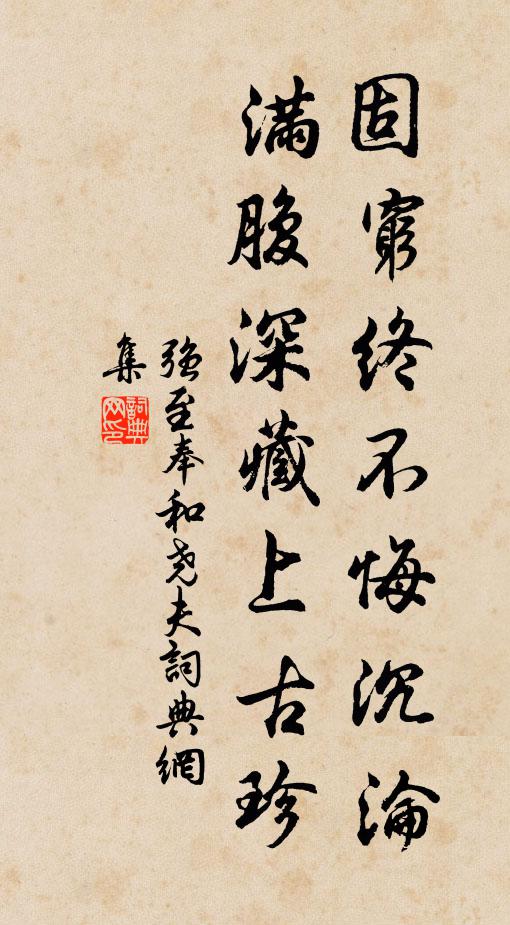 固窮終不悔沉淪
滿腹深藏上古珍
強至奉和堯夫詞典網
集
詞典
网印